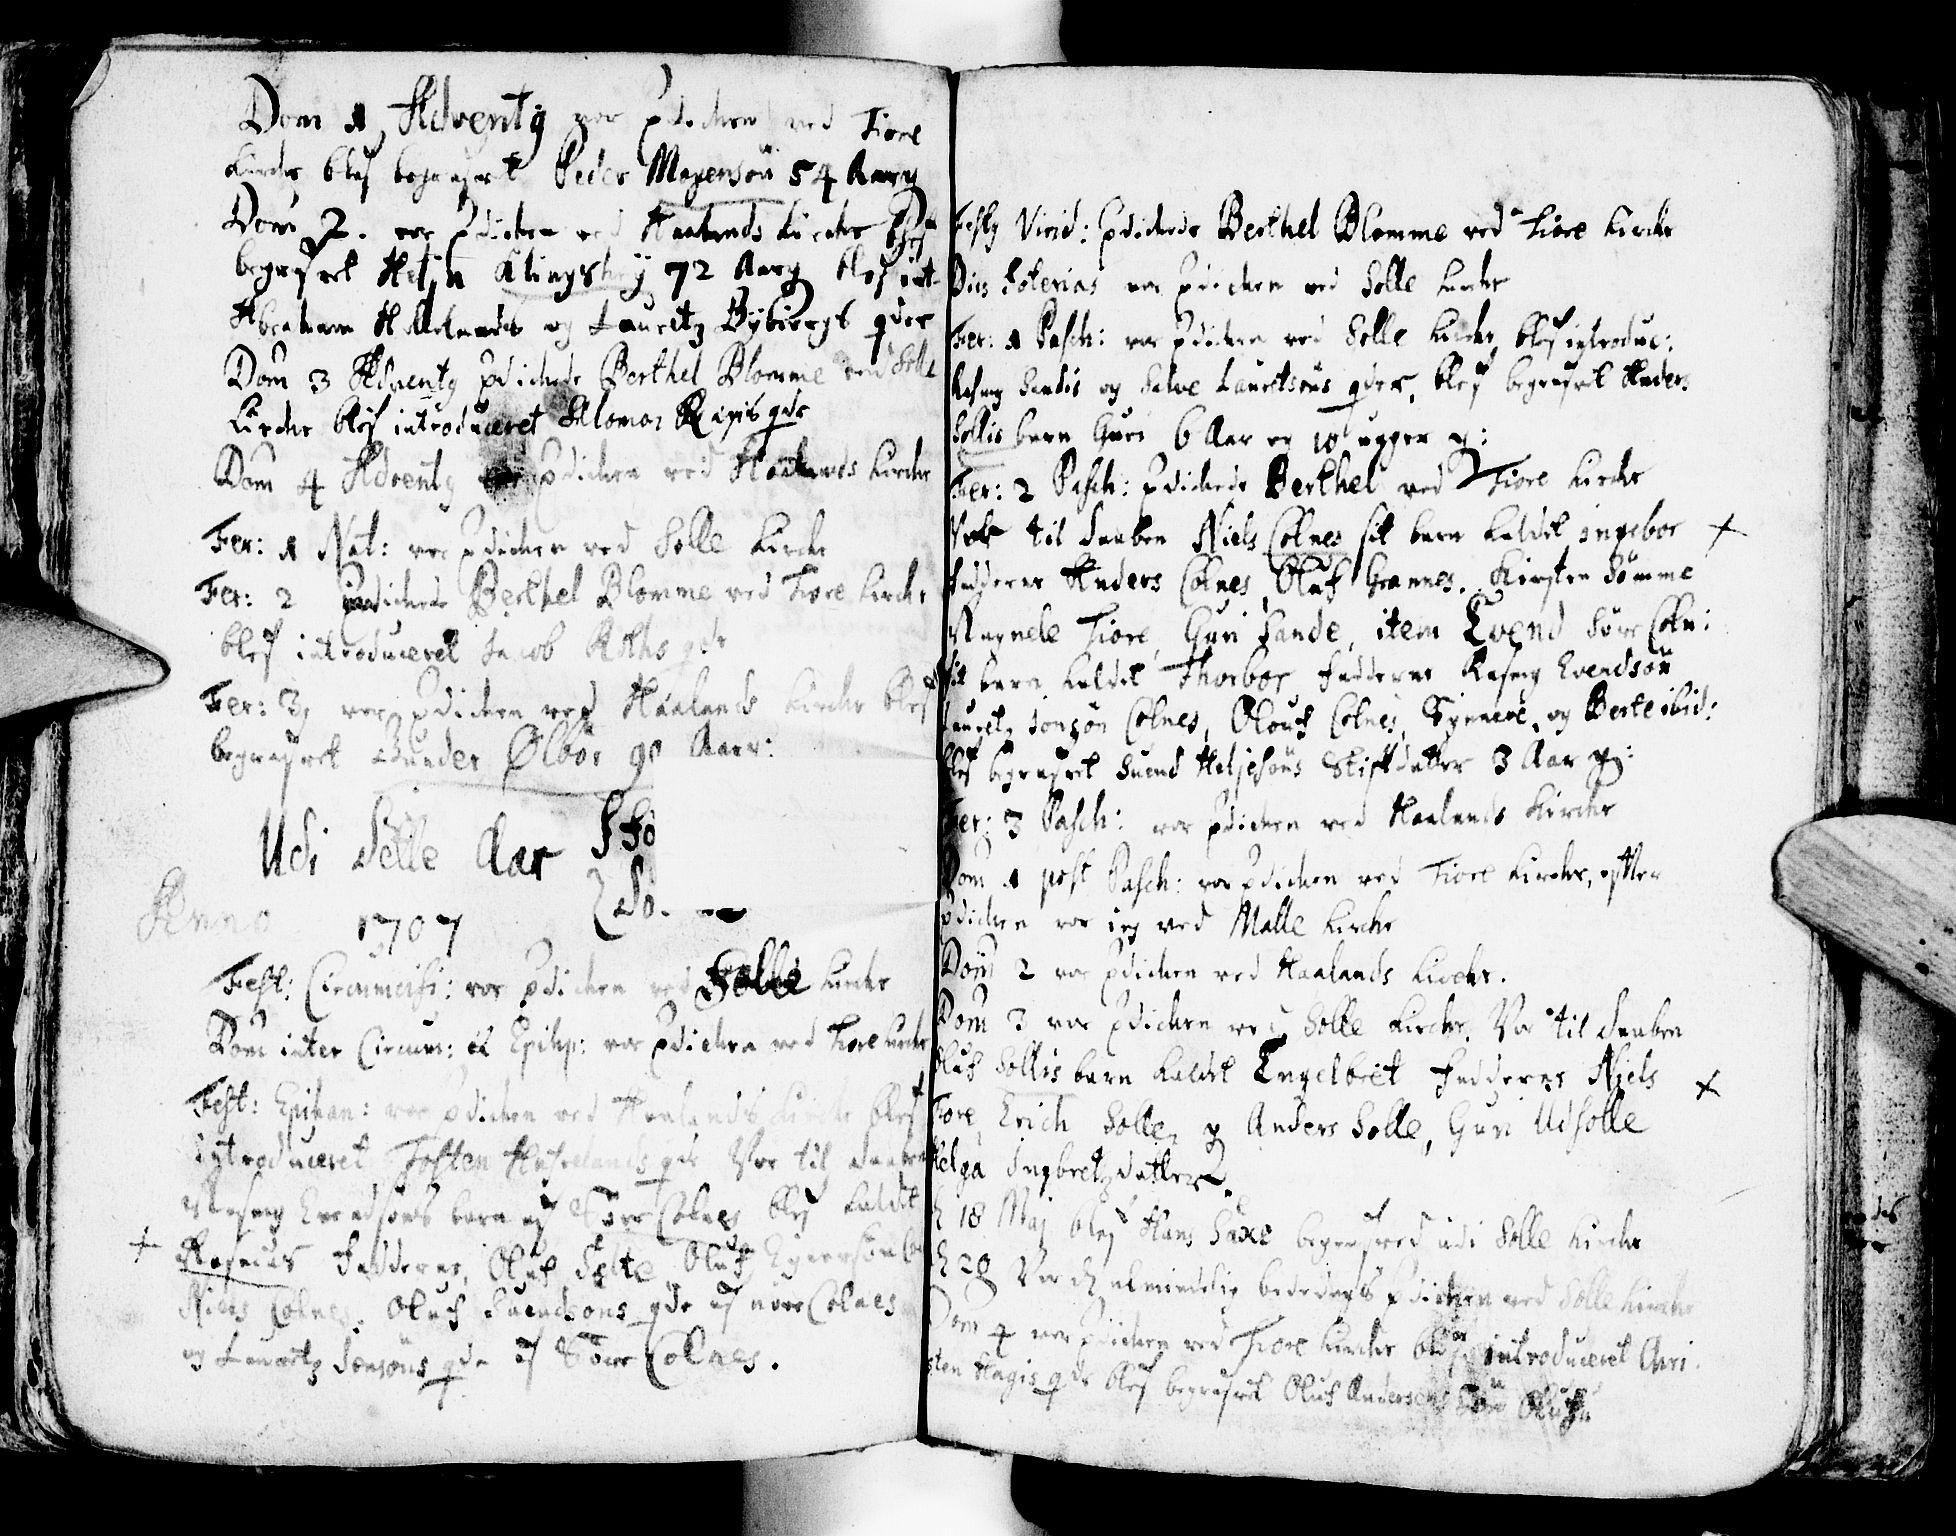 Dom 1, Adventg var Pdichen ved Tiore
Kircke blef begrafvet Peder Mogensøn 54 Aarg
Dom 2. var Pdichen ved Haalands Kircke blef
begrafvet Helin 72 Aarg blef int-
Abraham og Lauritz Bybiergs qder
Dom 3 Adventg Pdichede Berthel Blomme ved Solle
Kircke blef introduceret Salomon Ræfis qde
Dom 4 Adventg var Pdichen ved Haalands Kircke
Fer: 1 Nat: var Pdichen ved Solle Kircke
Fer: 2 Pdichede Berthel Blomme ved Tiore Kircke
blef introduceret Jacob qde
Fer: 3, var Pdichen ved Haalands Kircke blef
begrafvet Gunder Ølbør 90 Aarr:
Udi Selle Aar
Anno 1707
Fest: Circumcisi: var Pdichen ved Solle Kircke
Dom inter Circum: et Epiph: var Pdichen ved Tiore Kircke
Fest: Epiphan: var Pdichen ved Haalands Kircke blef
introduceret Tosten qde Var til Daaben
Rasmg Evendsøns barn af Søre Colnes blef kaldet
+ Rasmus Fadderne, Oluf Selte, Oluf
Niels Colnes, Oluf Suendsøns qde af nore Colnes
og Lauritz Jensøns qde af Søre Colnes.
Festg Virid: Pdichede Berthel Blomme ved Tiore Kircke
Dies Soterias var Pdichen ved Solle Kircke
Fer: 1 Pasch: var Pdichen ved Solle Kircke, blef introduc:
Rasmg Sandis og Salve Lauritsøns qder, blef begrafvet Anders
Sollis barn Guri 6 Aar og 10 ugger g:
Fer: 2 Pasch: Pdichede Berthel ved Tiore Kircke
Var til Daaben Niels Colnes sit barn kaldet Ingebor +
Fadderne Anders Colnes, Oluf Grannes, Kirsten Sømme
Magnele Tiore, Guri Sande, item Evend Søre Coln:
sit barn kaldet Thorbor Fadderne Rasmg Evendsøn
Lauritz Jonsøn Colnes, Olouf Colnes, Synneve, og Berte ibid:
blef begrafvet Suend Heljesøns Stifdatter 3 Aar g:
Fer: 3 Pasch: var Pdichen ved Haalands Kircke
Dom 1 post Pasch: var Pdichen ved Tiore Kircke, effter
Pdichen var ieg ved Malle Kircke
Dom 2 var Pdichen ved Haalands Kircke.
Dom 3 var Pdichen ved Solle Kircke. Var til Daaben
Oluf Sollis barn kaldet Engelbret Fadderne Niels +
Tiore, Erich Solle, og Anders Solle, Guri Udsolle
Helga Ingbretzdatter.
d 18 Maj blef Hans Saxe begrafved udi Solle Kircke
d 20 Var d almindelig bededags Pdichen ved Solle Kircke
Dom 4 var Pdichen ved Tiore Kircke blef introduceret Chri-
sten Hagis qde blef begrafvet Oluf Andersens Søn Oluf